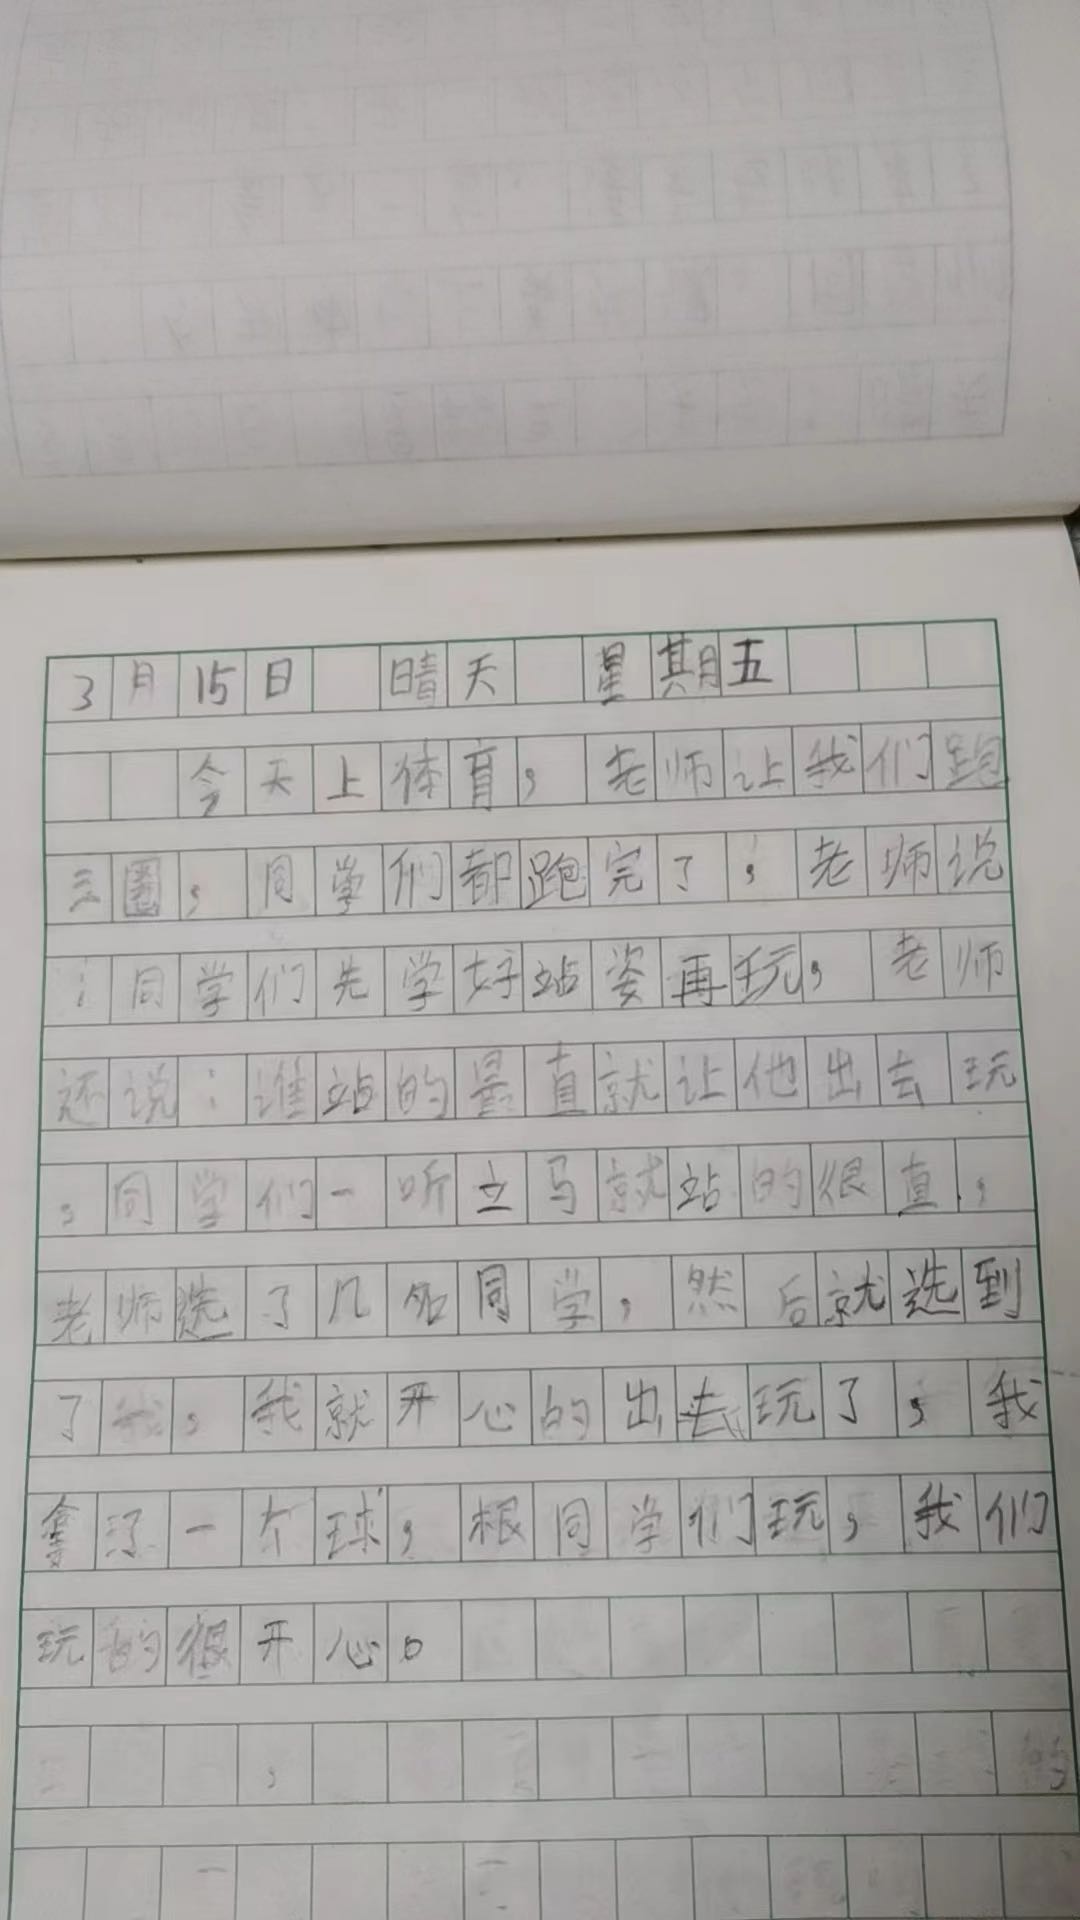 3月15日 晴天 星期五
今天上体育，老师让我们跑
三圈，同学们都跑完了，老师说
：同学们先学好站姿再玩，老师
还说：谁站的最直就让他出去玩
，同学们一听立马就站的很直，
老师选了几名同学，然后就选到
了我，我就开心的出去玩了，我
拿了一个球，根同学们玩，我们
玩的很开心。